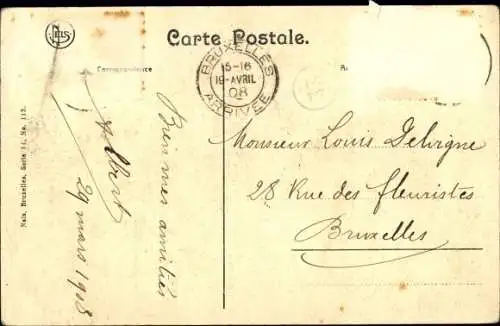 Carte Postale.
Correspondance
BRUXELLES
15-16
19-AVRIL
08
ARRIVÉE
Bien mes amitiés
Albert
29 mars 1908
Monsieur Louis Delvigne
28 Rue des fleuristes
Bruxelles
Nels, Bruxelles, Serie 14, No. 113.